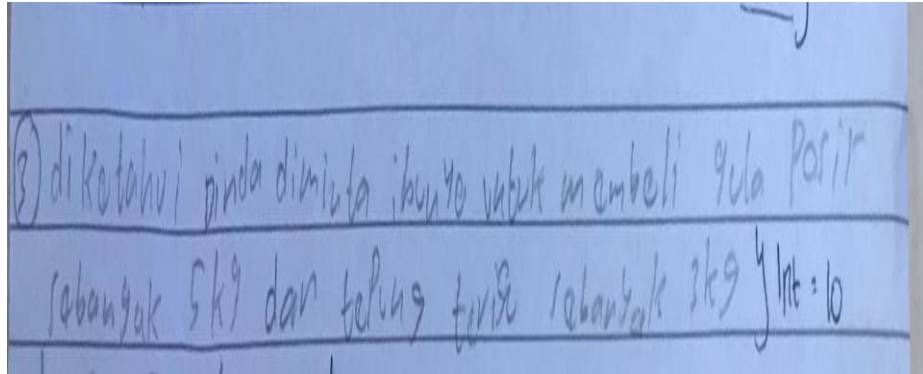 ③ diketahui pinda diminta ibunya untuk membeli gula Pasir
sebanyak 5kg dan tepung sebanyak 3kg } Int = 10